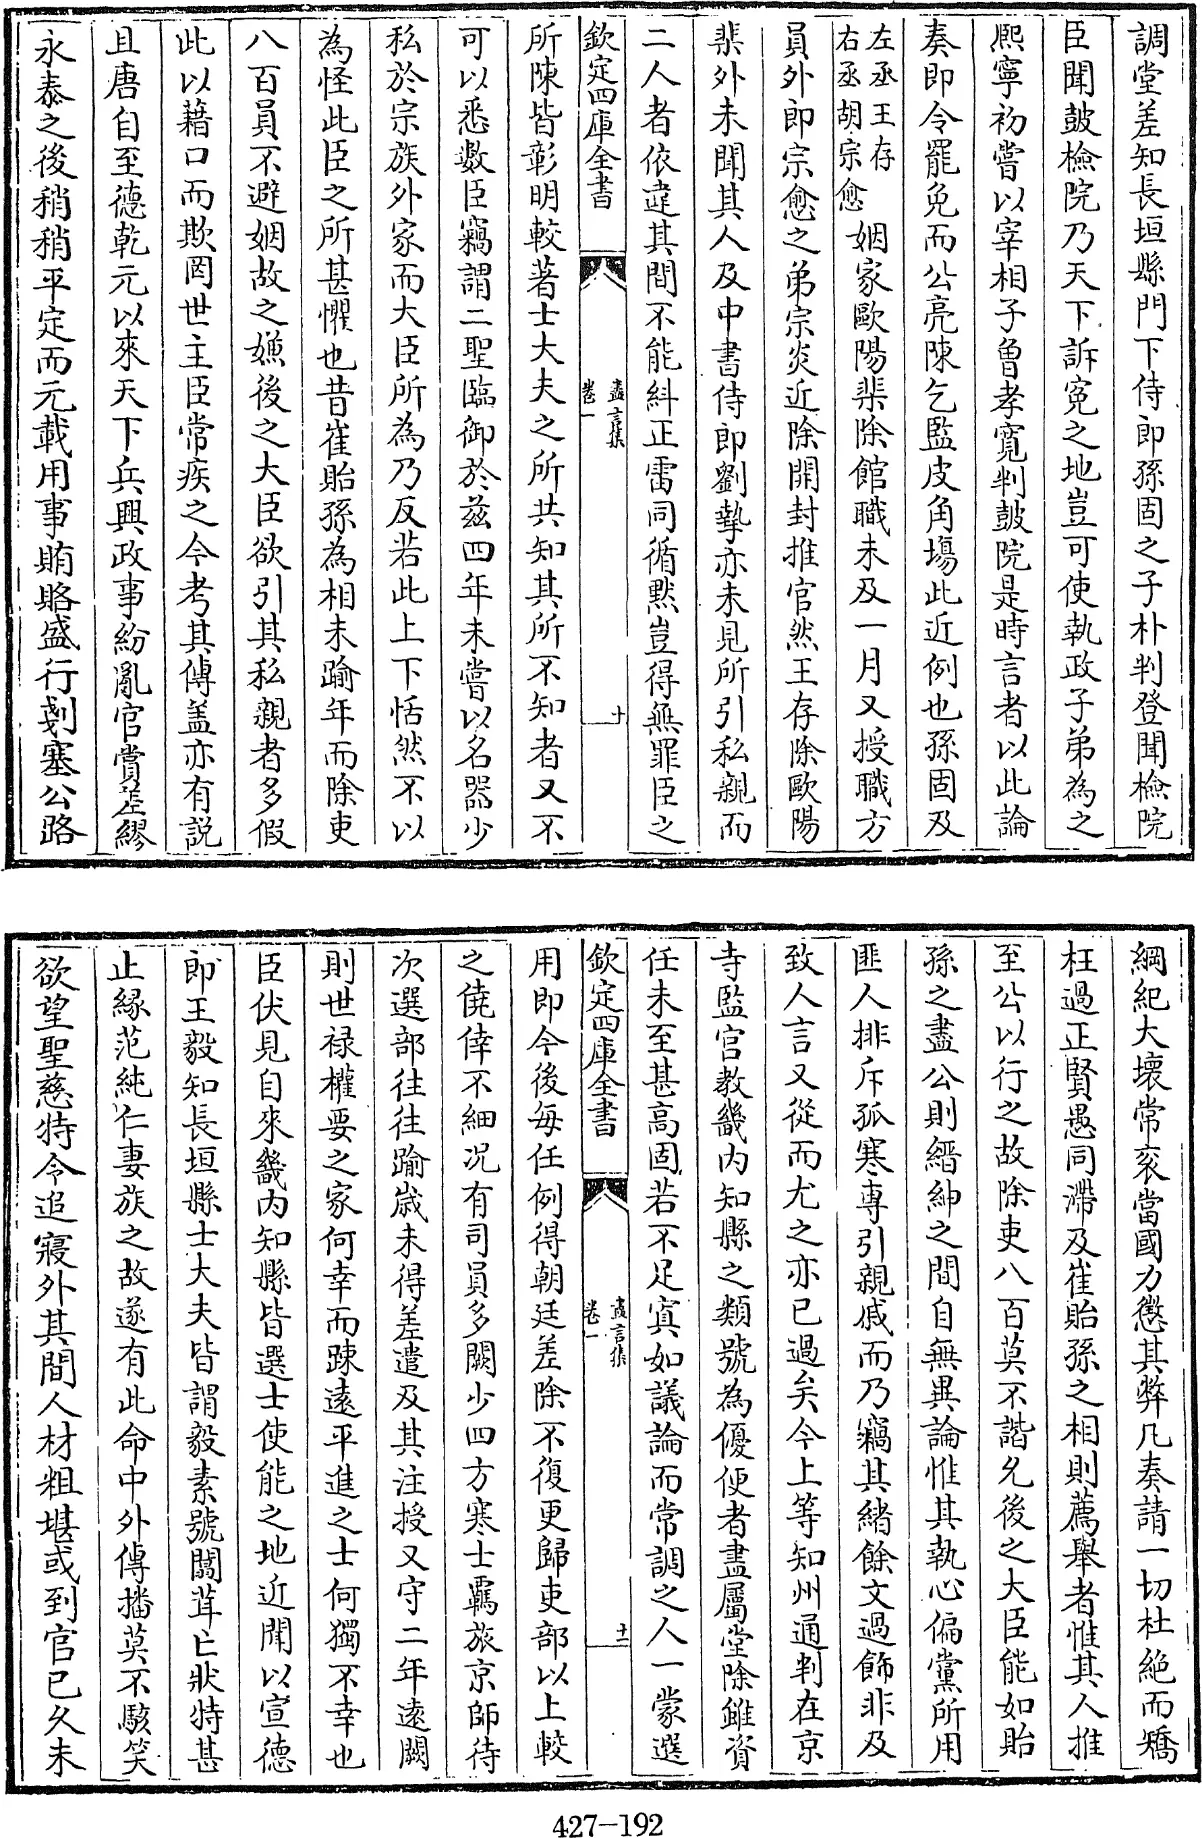 調堂差知長垣縣門下侍郎孫固之子朴判登聞檢院
臣聞鼓檢院乃天下訴寃之地豈可使執政子弟為之
熈寧初嘗以宰相子曾孝寬判鼓院是時言者以此論
奏即令罷免而公亮陳乞監皮角場此近例也孫固及
左丞王存
右丞胡宗愈
姻家歐陽棐除館職未及一月又授職方
員外郎宗愈之弟宗炎近除開封推官然王存除歐陽
棐外未聞其人及中書侍郎劉摯亦未見所引私親而
二人者依違其間不能糾正雷同循黙豈得無罪臣之
欽定四庫全書
盡言集
卷一
十
所陳皆彰明較著士大夫之所共知其所不知者又不
可以悉數臣竊謂二聖臨御於兹四年未嘗以名器少
私於宗族外家而大臣所為乃反若此上下恬然不以
為怪此臣之所甚懼也昔崔貽孫為相未踰年而除吏
八百員不避姻故之嫌後之大臣欲引其私親者多假
此以藉口而欺罔世主臣常疾之今考其傳盖亦有説
且唐自至德乾元以來天下兵興政事紛亂官賞差繆
永泰之後稍稍平定而元載用事賄賂盛行剗塞公路
綱紀大壞常衮當國力懲其弊凡奏請一切杜絶而矯
枉過正賢愚同滯及崔貽孫之相則薦舉者惟其人推
至公以行之故除吏八百莫不諧允後之大臣能如貽
孫之盡公則縉紳之間自無異論惟其執心偏黨所用
匪人排斥孤寒專引親戚而乃竊其緒餘文過飾非及
致人言又從而尤之亦已過矣今上等知州通判在京
寺監官教畿内知縣之類號為優便者盡屬堂除雖資
任未至甚高固若不足寘如議論而常調之人一蒙選
欽定四庫全書
盡言集
卷一
十一
用即今後每任例得朝廷差除不復更歸吏部以上較
之僥倖不細况有司員多闕少四方寒士覊旅京師待
次選部往往踰嵗未得差遣及其注授又守二年逺闕
則世禄權要之家何幸而踈逺平進之士何獨不幸也
臣伏見自來畿内知縣皆選士使能之地近聞以宣德
郎王毅知長垣縣士大夫皆謂毅素號闒茸亡狀特甚
止緣范純仁妻族之故遂有此命中外傳播莫不駭笑
欲望聖慈特令追寢外其間人材粗堪或到官已久未
427-192